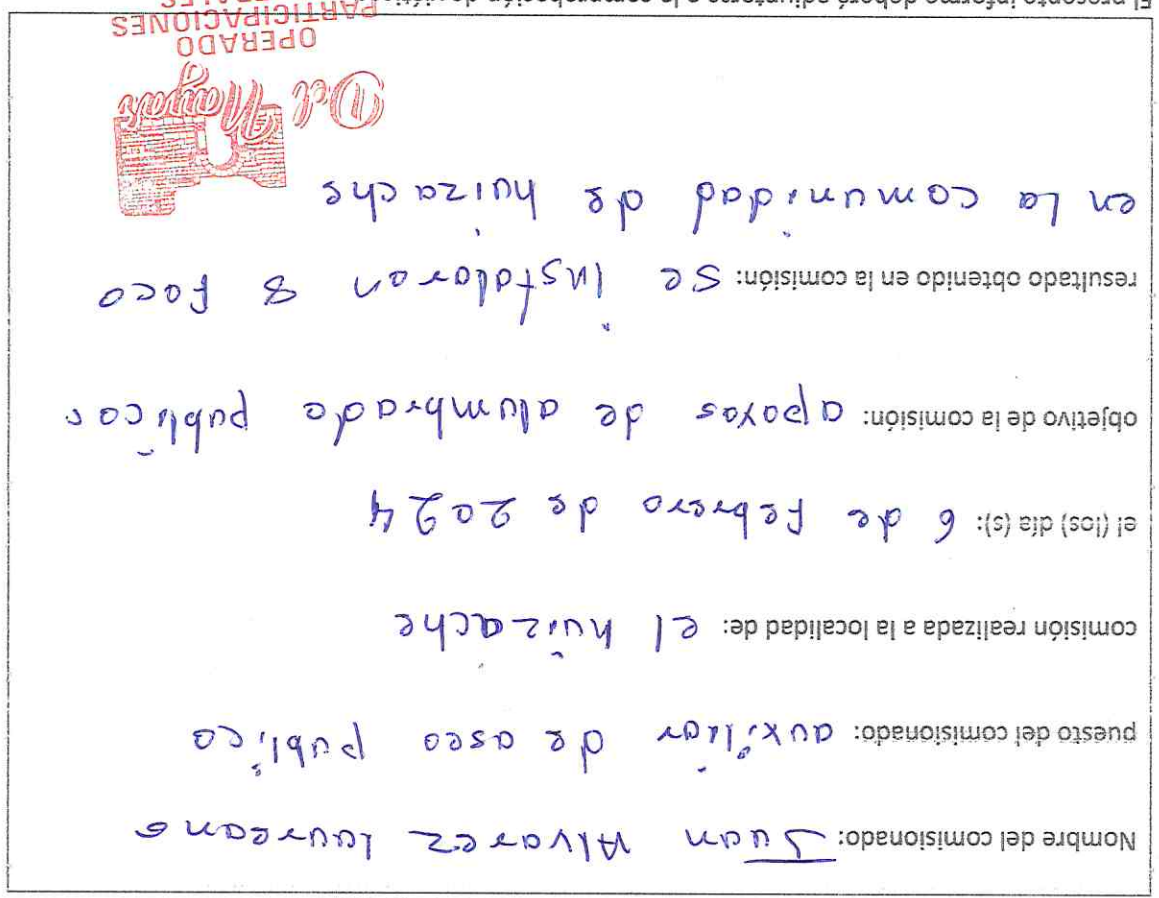 Nombre del comisionado: Juan Alvarez Laureano
puesto del comisionado: auxiliar de aseo publico
comisión realizada a la localidad de: el huizache
el (los) día (s): 6 de Febrero de 2024
objetivo de la comisión: apoyos de alumbrado publicos
resultado obtenido en la comisión: se instalaron 8 foco
en la comunidad de huizache
OPERADO
PARTICIPACIONES
El presente informe deberá adjuntarse a la comprobación de